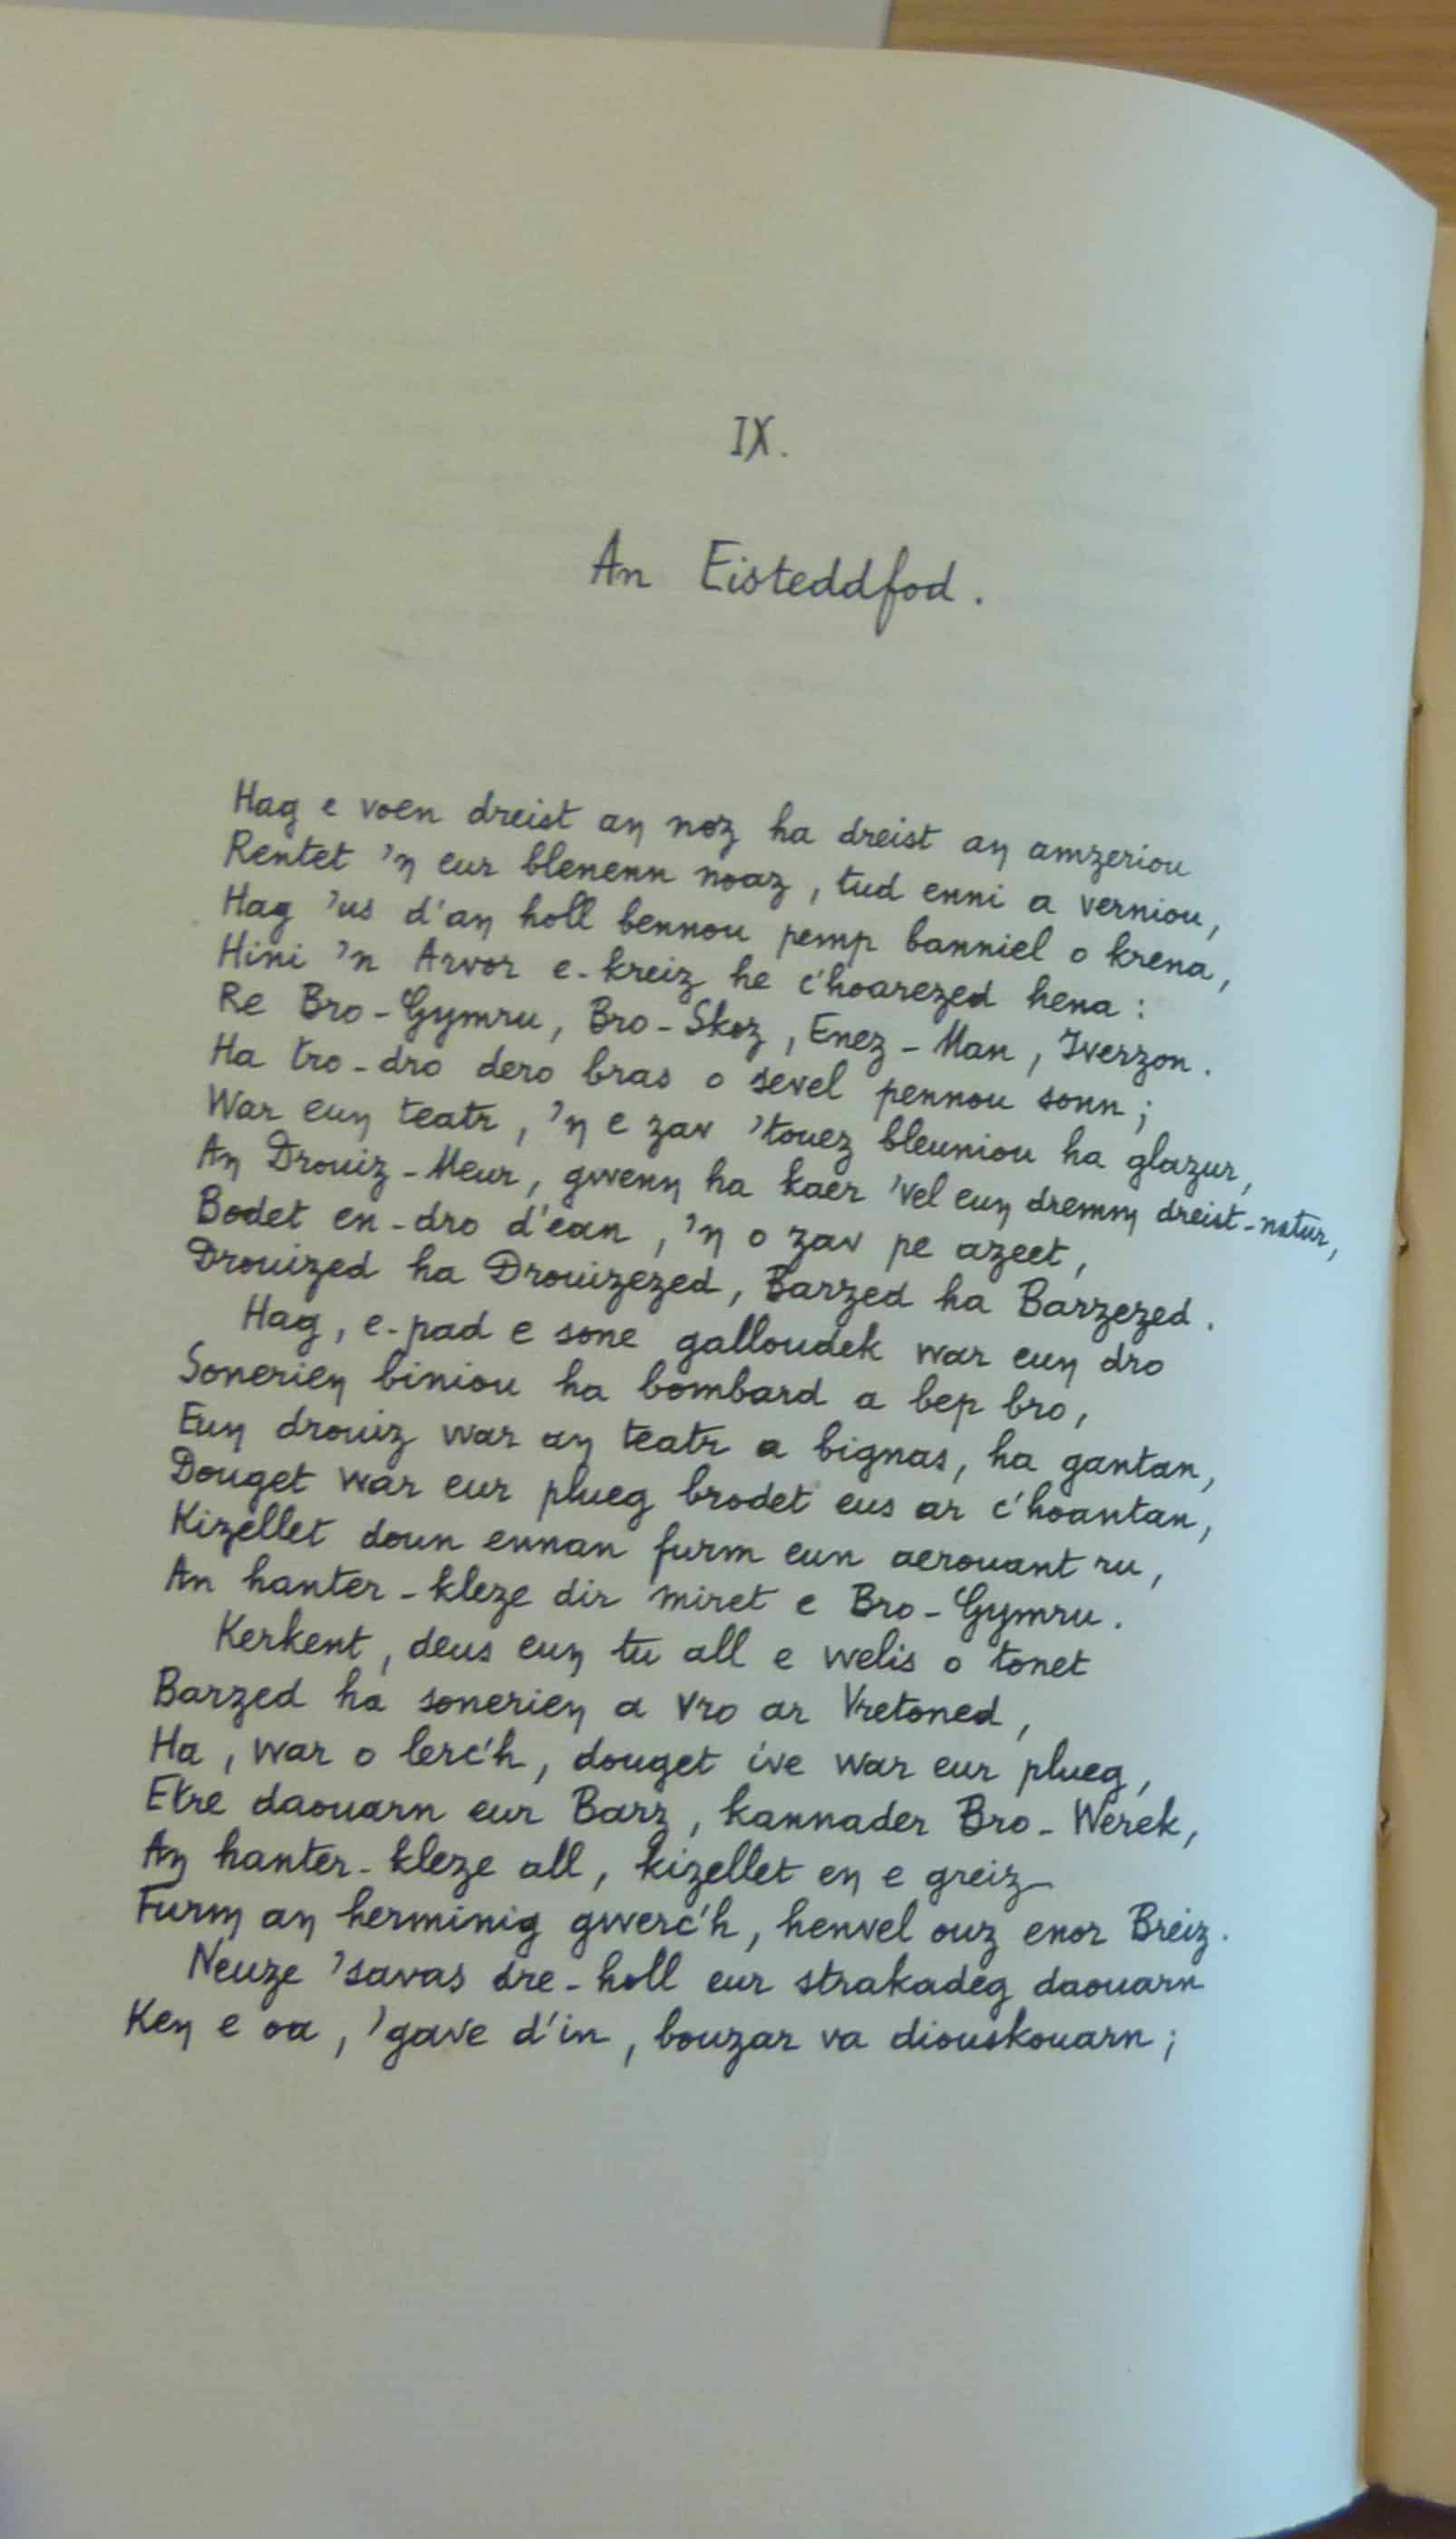 IX.
An Eisteddfod.
Hag e voen dreist aŋ noz ha dreist aŋ amzeriou
Rentet 'ŋ eur blenenn noaz, tud enni a verniou,
Hag 'us d'aŋ holl bennou pemp banniel o krena,
Hini 'n Arvor e-kreiz he c'hoarezed hena :
Re Bro-Gymru, Bro-Skoz, Enez-Man, Iverzon.
Ha tro-dro dero bras o sevel pennou sonn ;
War euŋ teatr, 'ŋ e zav 'touez bleuniou ha glazur,
Aŋ Drouiz-Meur, gwenŋ ha kaer 'vel euŋ dremmŋ dreist-natur,
Bodet en-dro d'ean, 'ŋ o zav pe azeet,
Drouized ha Drouizezed, Barzed ha Barzezed.
Hag, e-pad e sone galloudek war euŋ dro
Sonerieŋ biniou ha bombard a bep bro,
Euŋ drouiz war aŋ teatr a bignas, ha gantan,
Douget war eur plueg brodet eus ar c'hoantan,
Kizellet doun ennan furm eun aerouant ru,
An hanter-kleze dir miret e Bro-Gymru.
Kerkent, deus euŋ tu all e welis o tonet
Barzed ha sonerieŋ a Vro ar Vretoned,
Ha, war o lerc'h, douget ive war eur plueg,
Etre daouarn eur Barz, kannader Bro-Werek,
Aŋ hanter-kleze all, kizellet eŋ e greiz
Furmŋ aŋ herminig gwerc'h, henvel ouz enor Breiz.
Neuze 'savas dre-holl eur strakadeg daouarn
Keŋ e oa, 'gave d'in, bouzar va diouskouarn ;